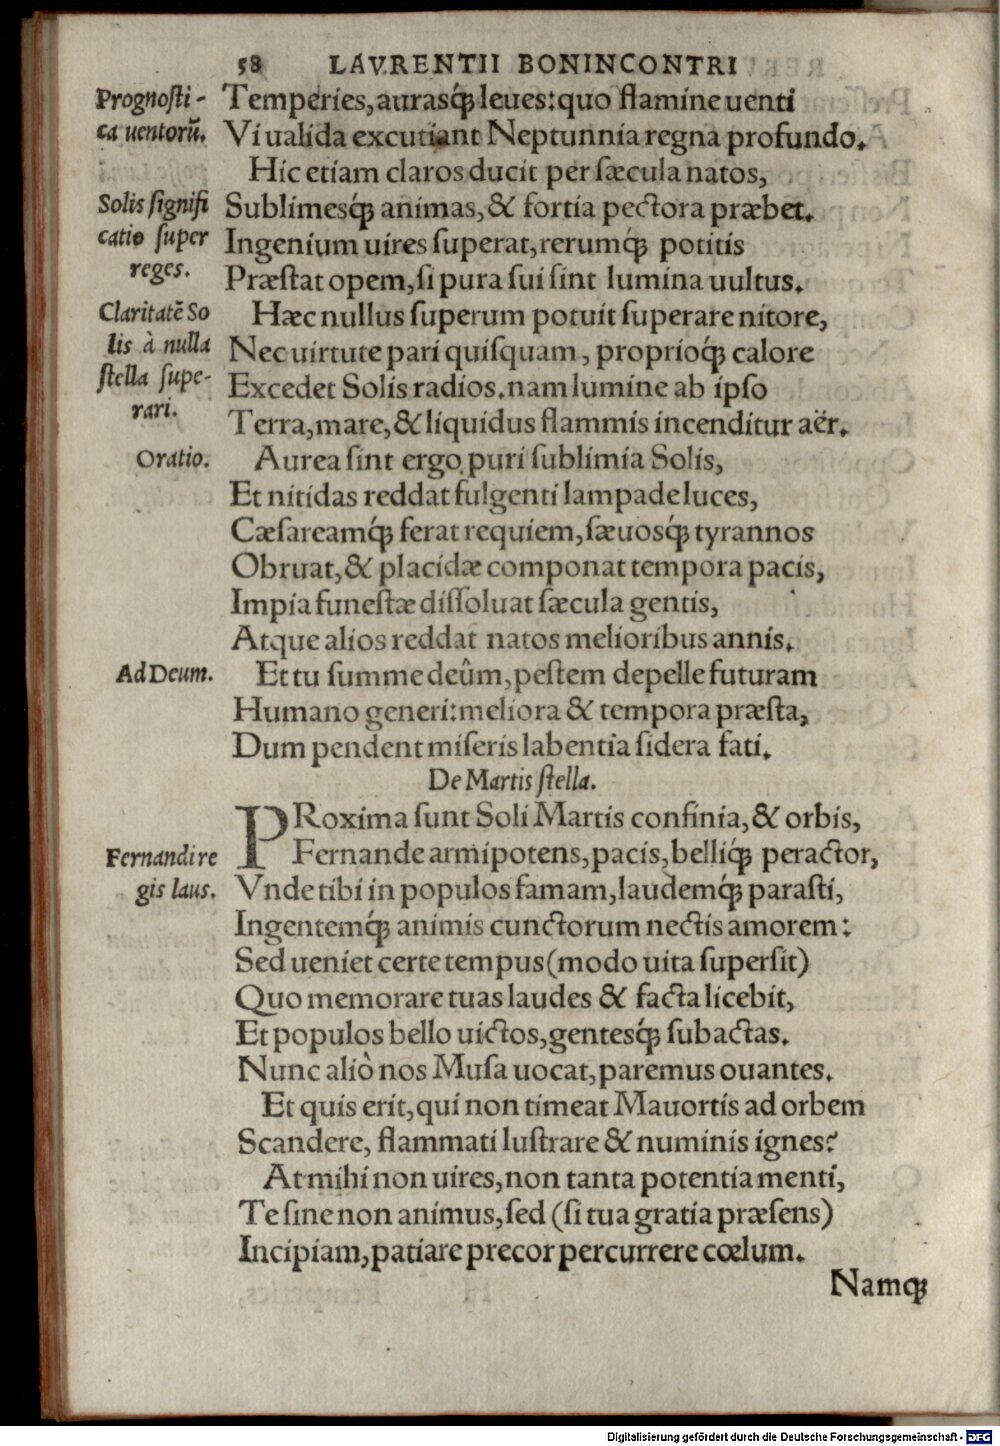 58 LAVRENTII BONINCONTRI
Prognosti-
ca uentorũ.
Temperies, aurasq́ꝫ leues: quo flamine uenti
Vi ualida excutiant Neptunnia regna profundo.
Hic etiam claros ducit per sæcula natos,
Solis signifi
catio super
reges.
Sublimesq́ꝫ animas, & fortia pectora præbet.
Ingenium uires superat, rerumq́ꝫ potitis
Præstat opem, si pura sui sint lumina uultus.
Claritatẽ So
lis à nulla
stella supe-
rari.
Hæc nullus superum potuit superare nitore,
Nec uirtute pari quisquam, proprioq́ꝫ calore
Excedet Solis radios. nam lumine ab ipso
Terra, mare, & liquidus flammis incenditur aër.
Oratio.
Aurea sint ergo puri sublimia Solis,
Et nitidas reddat fulgenti lampade luces,
Cæsareamq́ꝫ ferat requiem, sæuosq́ꝫ tyrannos
Obruat, & placidæ componat tempora pacis,
Impia funestæ dissoluat sæcula gentis,
Atque alios reddat natos melioribus annis.
Ad Deum.
Et tu summe deûm, pestem depelle futuram
Humano generi: meliora & tempora præsta,
Dum pendent miseris labentia sidera fati.
De Martis stella.
PRoxima sunt Soli Martis confinia, & orbis,
Fernandi re
gis laus.
Fernande armipotens, pacis, belliq́ꝫ peractor,
Vnde tibi in populos famam, laudemq́ꝫ parasti,
Ingentemq́ꝫ animis cunctorum nectis amorem:
Sed ueniet certe tempus (modo uita supersit)
Quo memorare tuas laudes & facta licebit,
Et populos bello uictos, gentesq́ꝫ subactas.
Nunc aliò nos Musa uocat, paremus ouantes.
Et quis erit, qui non timeat Mauortis ad orbem
Scandere, flammati lustrare & numinis ignes?
At mihi non uires, non tanta potentia menti,
Te sine non animus, sed (si tua gratia præsens)
Incipiam, patiare precor percurrere cœlum.
Namqꝫ
Digitalisierung gefördert durch die Deutsche Forschungsgemeinschaft - DFG